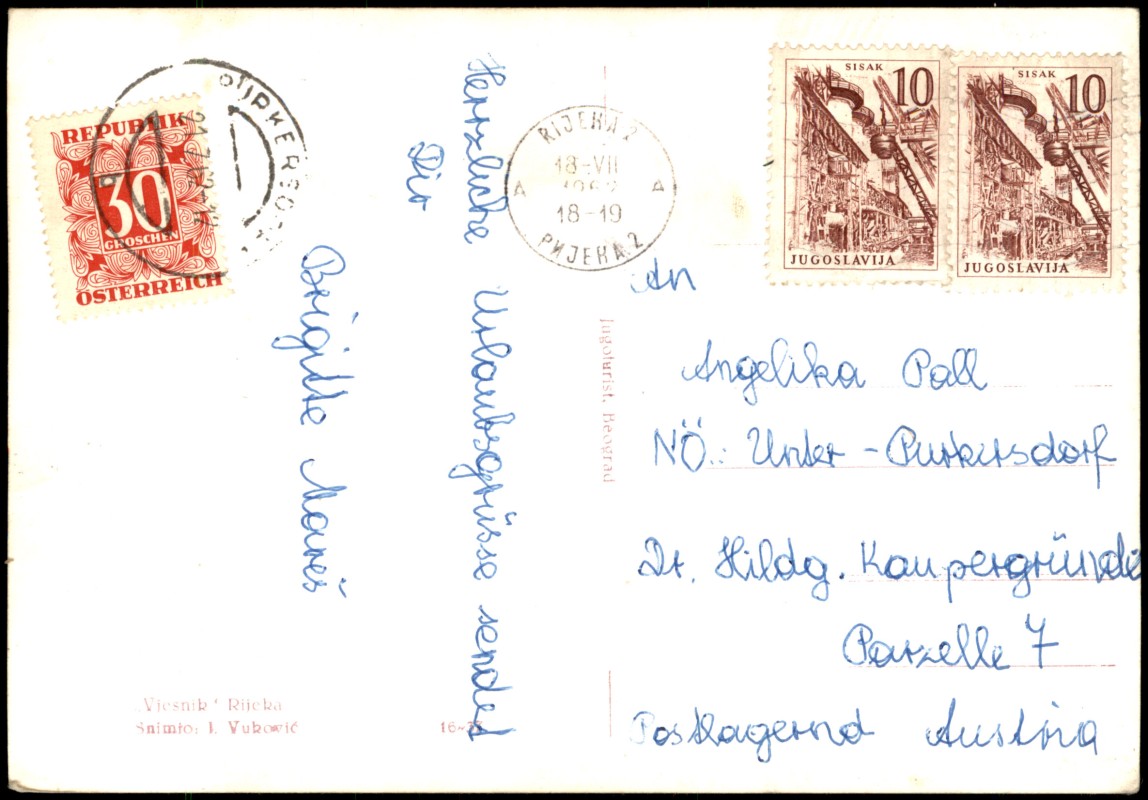 Herzliche Urlaubsgrüsse sendet
Dir
Brigitte Mareš
REPUBLIK
30
GROSCHEN
ÖSTERREICH
RIJEKA 2
18-VII
18-19
РИЈЕКА 2
A A
SISAK
10
JUGOSLAVIJA
SISAK
10
JUGOSLAVIJA
An
Angelika Pall
NÖ.: Unter-Purkersdorf
Dr. Hildg. Kaupergründe
Parzelle 7
Postlagernd Austria
Jugoturist, Beograd
„Vjesnik" Rijeka
Snimio: I. Vuković